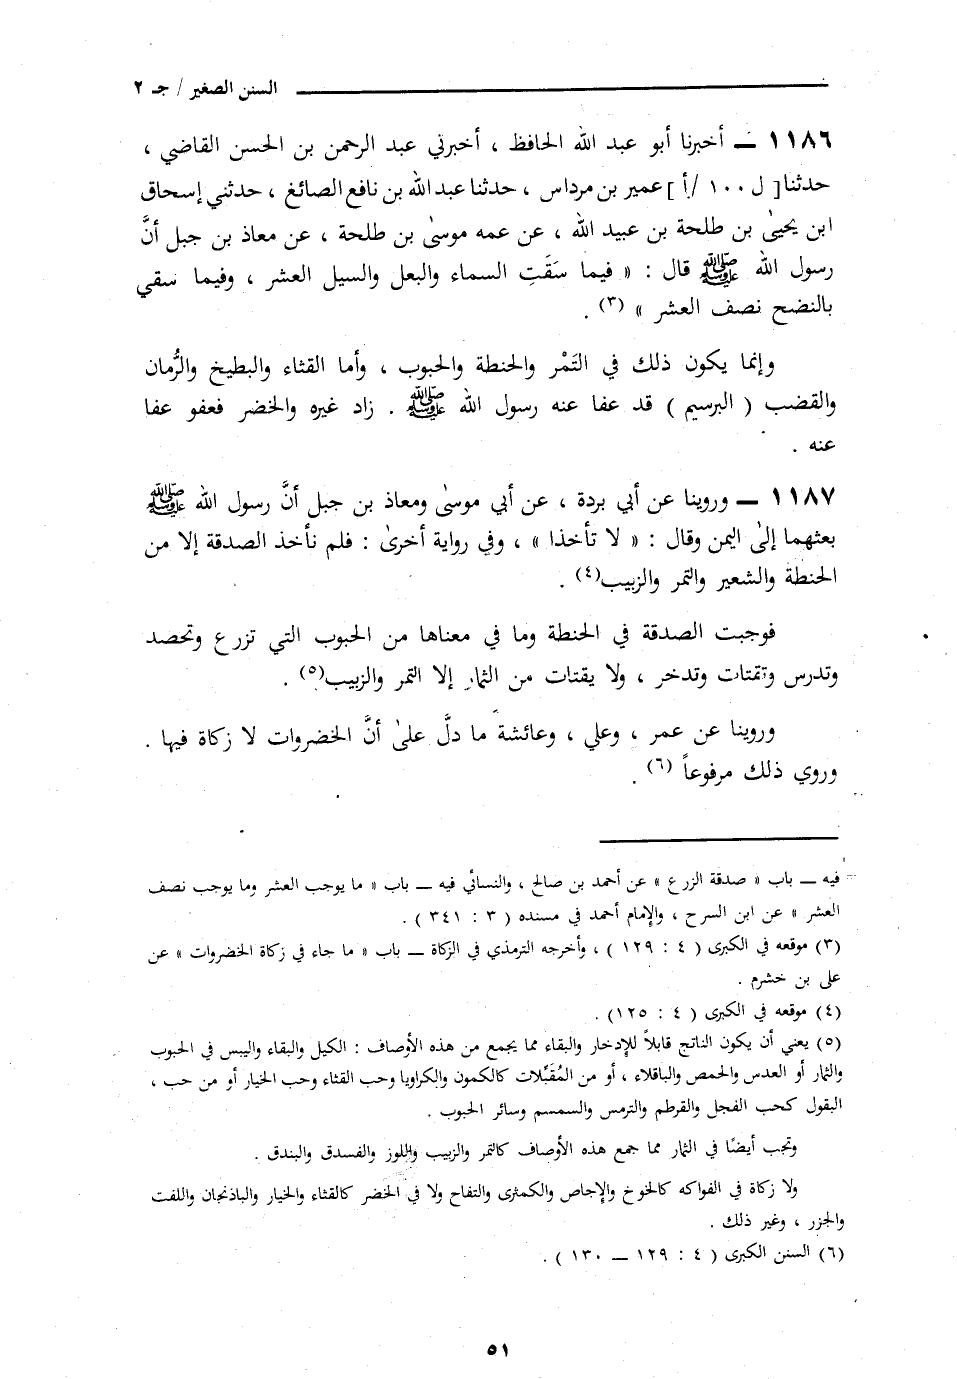 السنن الصغير / جـ ٢
١١٨٦ ــ أخبرنا أبو عبد الله الحافظ ، أخبرني عبد الرحمن بن الحسن القاضي ،
حدثنا [ ل ١٠٠ /أ ] عمير بن مرداس ، حدثنا عبد الله بن نافع الصائغ ، حدثني إسحاق
ابن يحيىٰ بن طلحة بن عبيد الله ، عن عمه موسىٰ بن طلحة ، عن معاذ بن جبل أنَّ
رسول الله ﷺ قال : « فيما سَقَتِ السماء والبعل والسيل العشر ، وفيما سقي
بالنضح نصف العشر » (٣) .
وإنما يكون ذلك في التَمْر والحنطة والحبوب ، وأما القثاء والبطيخ والرُّمان
والقضب ( البرسيم ) قد عفا عنه رسول الله ﷺ . زاد غيره والخضر فعفو عفا
عنه .
١١٨٧ ــ وروينا عن أبي بردة ، عن أبي موسىٰ ومعاذ بن جبل أنَّ رسول الله ﷺ
بعثهما إلىٰ اليمن وقال : « لا تأخذا » ، وفي رواية أخرىٰ : فلم نأخذ الصدقة إلا من
الحنطة والشعير والتمر والزبيب(٤) .
فوجبت الصدقة في الحنطة وما في معناها من الحبوب التي تزرع وتحصد
وتدرس وتقتات وتدخر ، ولا يقتات من الثمار إلا التمر والزبيب(٥) .
وروينا عن عمر ، وعلي ، وعائشة ما دلَّ علىٰ أنَّ الخضروات لا زكاة فيها .
وروي ذلك مرفوعاً (٦) .
فيه ــ باب « صدقة الزرع » عن أحمد بن صالح ، والنسائي فيه ــ باب « ما يوجب العشر وما يوجب نصف
العشر » عن ابن السرح ، والإمام أحمد في مسنده ( ٣ : ٣٤١ ) .
(٣) موقعه في الكبرى ( ٤ : ١٢٩ ) ، وأخرجه الترمذي في الزكاة ــ باب « ما جاء في زكاة الخضروات » عن
على بن خشرم .
(٤) موقعه في الكبرى ( ٤ : ١٢٥ ) .
(٥) يعني أن يكون الناتج قابلاً للإدخار والبقاء مما يجمع من هذه الأوصاف : الكيل والبقاء واليبس في الحبوب
والثمار أو العدس والحمص والباقلاء ، أو من المُقَبِّلات كالكمون والكراويا وحب القثاء وحب الخيار أو من حب ،
البقول كحب الفجل والقرطم والترمس والسمسم وسائر الحبوب .
وتجب أيضًا في الثمار مما جمع هذه الأوصاف كالتمر والزبيب واللوز والفسدق والبندق .
ولا زكاة في الفواكه كالخوخ والإجاص والكمثرى والتفاح ولا في الخضر كالقثاء والخيار والباذنجان واللفت
والجزر ، وغير ذلك .
(٦) السنن الكبرى ( ٤ : ١٢٩ ــ ١٣٠ ) .
٥١